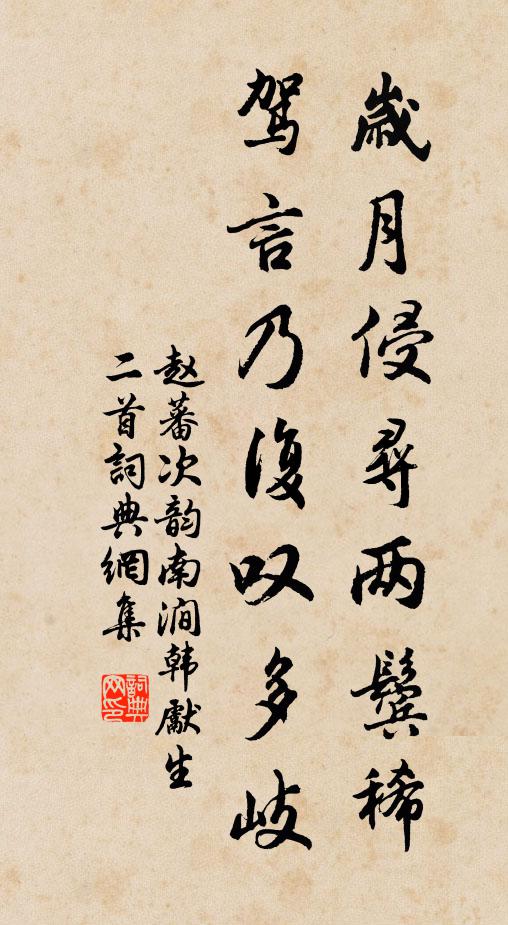 歲月侵尋两鬓稀
驾言乃復叹多岐
赵蕃次韵南澗韩獻生
二首詞典網集
詞典網印